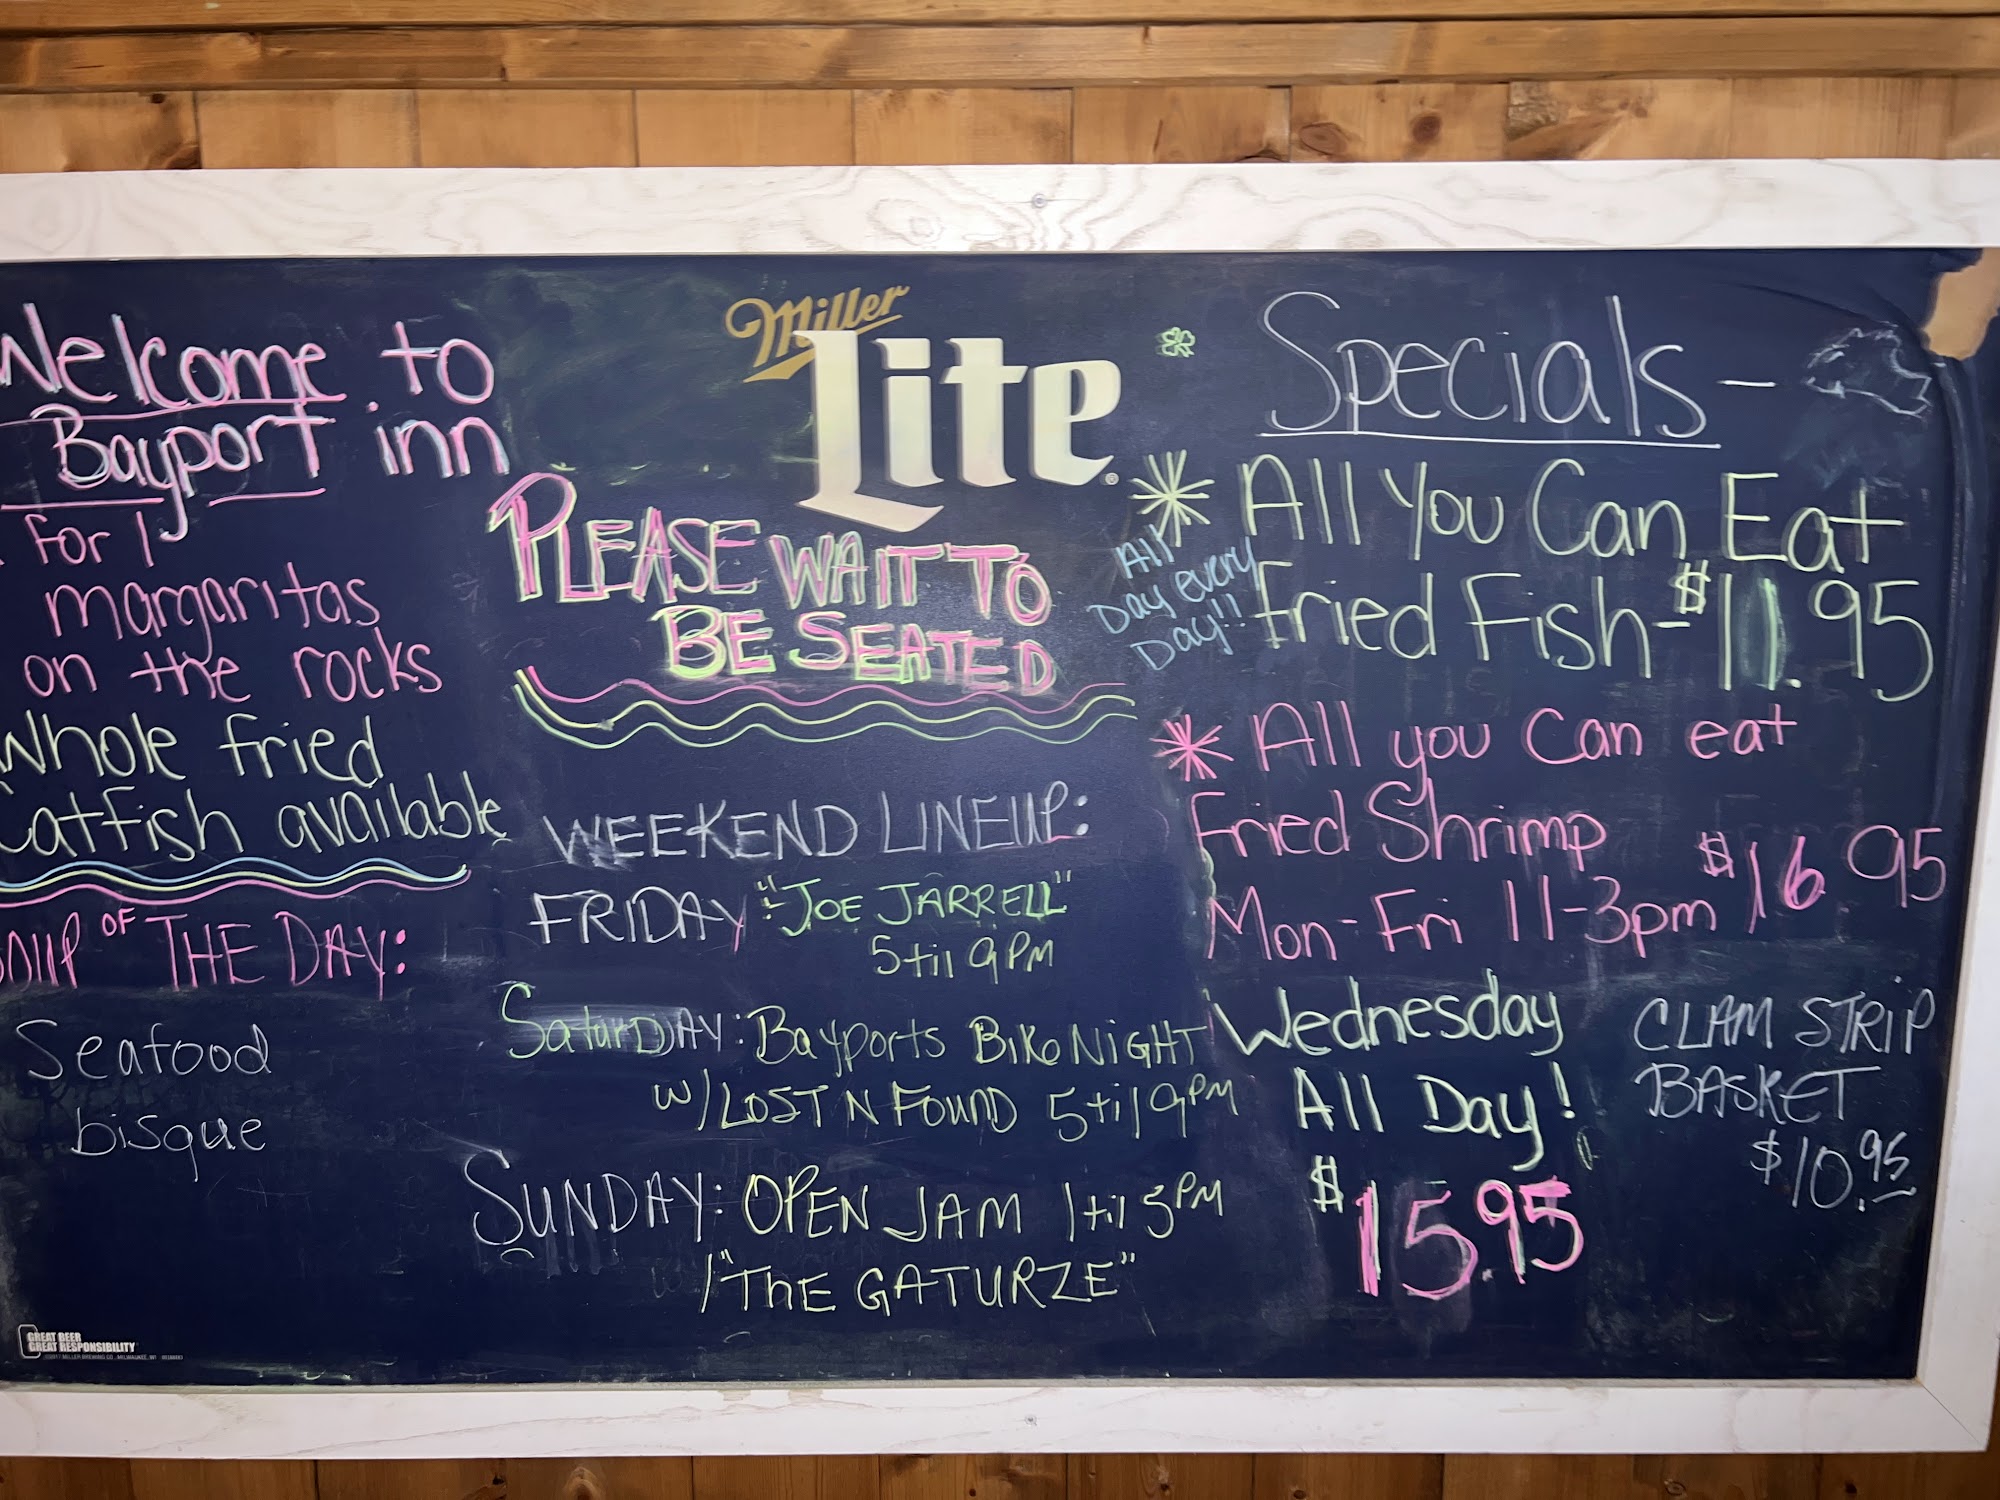 Welcome to
Bayport inn
for 1
margaritas
on the rocks
Whole fried
Catfish available
Soup OF THE DAY:
Seafood
bisque
GREAT BEER
GREAT RESPONSIBILITY
Miller
Lite
PLEASE WAIT TO
BE SEATED
WEEKEND LINEUP:
FRIDAY: "JOE JARRELL"
5 til 9 PM
SATURDAY: Bayports BIKE NIGHT
w/ LOST N FOUND 5 til 9PM
SUNDAY: OPEN JAM 1 til 5PM
/"THE GATURZE"
Specials -
All You Can Eat
Fried Fish - $11.95
All
Day every
Day!!
All you can eat
Fried Shrimp
Mon-Fri 11-3pm $16.95
Wednesday
All Day!
$15.95
CLAM STRIP
BASKET
$10.95